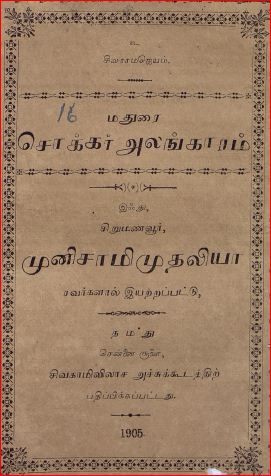 உ
சிவராமஜெயம்.
16
மதுரை
சொக்கர் அலங்காரம்
இஃது,
சிறுமணவூர்,
முனிசாமிமுதலியா
ரவர்களால் இயற்றப்பட்டு,
நமது
சென்னை
சிவகாமிவிலாச அச்சுக்கூடத்திற்
பதிப்பிக்கப்பட்டது.
1905